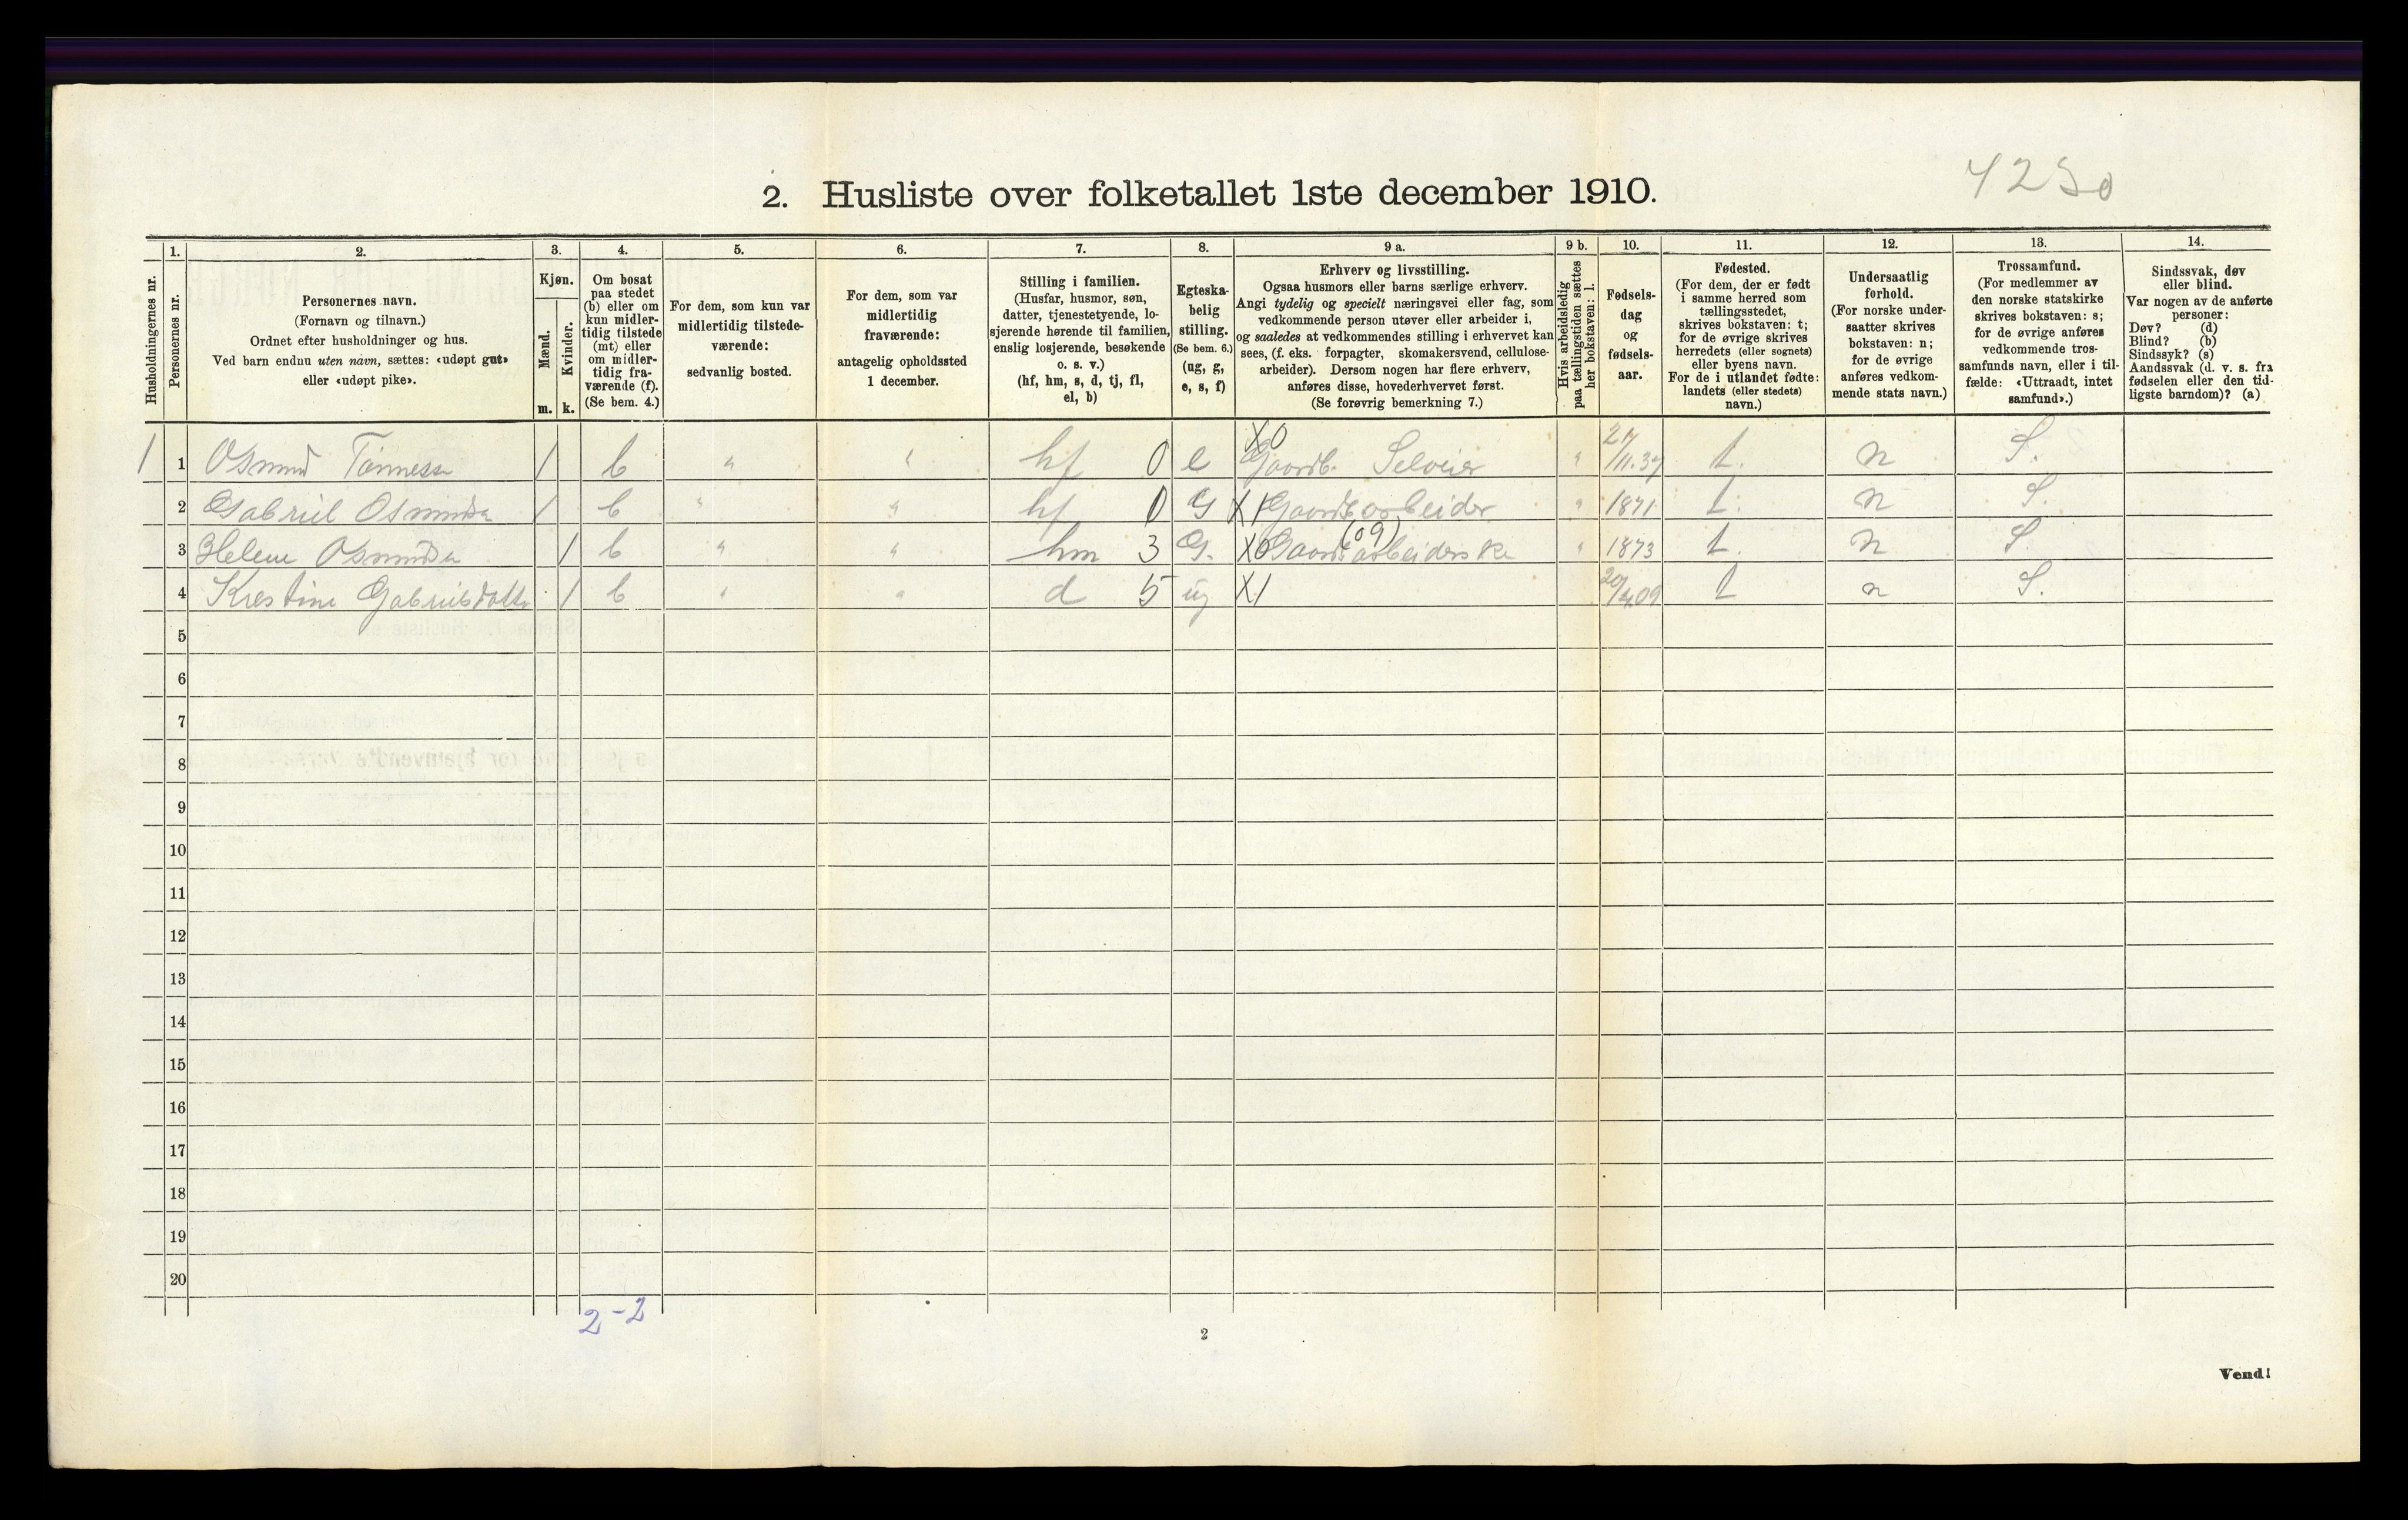 4250
2. Husliste over folketallet 1ste december 1910.
Husholdningernes nr.
1.
Personernes nr.
2.
Personernes navn.
(Fornavn og tilnavn.)
Ordnet efter husholdninger og hus.
Ved barn endnu uten navn, sættes: «udøpt gut»
eller «udøpt pike».
3.
Kjøn.
Mænd.
Kvinder.
m. k.
4.
Om bosat
paa stedet
(b) eller om
kun midler-
tidig tilstede
(mt) eller
om midler-
tidig fra-
værende (f).
(Se bem. 4.)
5.
For dem, som kun var
midlertidig tilstede-
værende:
sedvanlig bosted.
6.
For dem, som var
midlertidig
fraværende:
antagelig opholdssted
1 december.
7.
Stilling i familien.
(Husfar, husmor, søn,
datter, tjenestetyende, lo-
sjerende hørende til familien,
enslig losjerende, besøkende
o. s. v.)
(hf, hm, s, d, tj, fl,
el, b)
8.
Egteska-
belig
stilling.
(Se bem. 6.)
(ug, g,
e, s, f)
9 a.
Erhverv og livsstilling.
Ogsaa husmors eller barns særlige erhverv.
Angi tydelig og specielt næringsvei eller fag, som
vedkommende person utøver eller arbeider i,
og saaledes at vedkommendes stilling i erhvervet kan
sees, (f. eks. forpagter, skomakersvend, cellulose-
arbeider). Dersom nogen har flere erhverv,
anføres disse, hovederhvervet først.
(Se forøvrig bemerkning 7.)
9 b.
Hvis arbeidsledig
paa tællingstiden sættes
her bokstaven: l.
10.
Fødsels-
dag
og
fødsels-
aar.
11.
Fødested.
(For dem, der er født
i samme herred som
tællingsstedet,
skrives bokstaven: t;
for de øvrige skrives
herredets (eller sognets)
eller byens navn.
For de i utlandet fødte:
landets (eller stedets)
navn.)
12.
Undersaatlig
forhold.
(For norske under-
saatter skrives
bokstaven: n;
for de øvrige
anføres vedkom-
mende stats navn.)
13.
Trossamfund.
(For medlemmer av
den norske statskirke
skrives bokstaven: s;
for de øvrige anføres
vedkommende tros-
samfunds navn, eller i til-
fælde: «Uttraadt, intet
samfund».)
14.
Sindssvak, døv
eller blind.
Var nogen av de anførte
personer:
Døv? (d)
Blind? (b)
Sindssyk? (s)
Aandssvak (d. v. s. fra
fødselen eller den tid-
ligste barndom)? (a)
1 1 Osmund Tønnesen 1 b " " hf 0 e X0 Gaardb. Selveier " 27/11.37 t. n S.
2 Gabriel Osmundsen 1 b " " hf 0 G X1 Gaardsarbeider " 1871 t. n S.
3 Helene Osmundsen 1 b " " hm 3 G. X0 Gaardsarbeiderske (09) " 1873 t. n S.
4 Krestine Gabrielsdatter 1 b " " d 5 ug X1 20/4.09 t n S.
5
6
7
8
9
10
11
12
13
14
15
16
17
18
19
20
2-2
2
Vend!